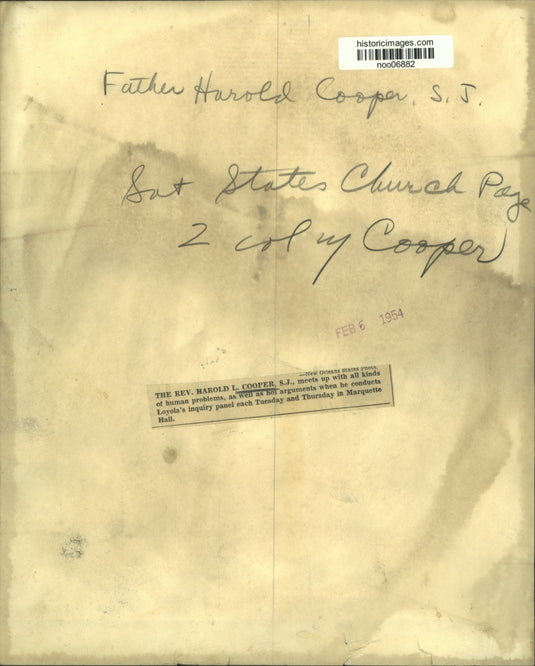 historicimages.com
noo06882
Father Harold Cooper, S.J.
Sat States Church Page
2 col w/ Cooper)
FEB 6 1954
—New Orleans States Photo.
THE REV. HAROLD L. COOPER, S.J., meets up with all kinds
of human problems, as well as hot arguments when he conducts
Loyola's inquiry panel each Tuesday and Thursday in Marquette
Hall.